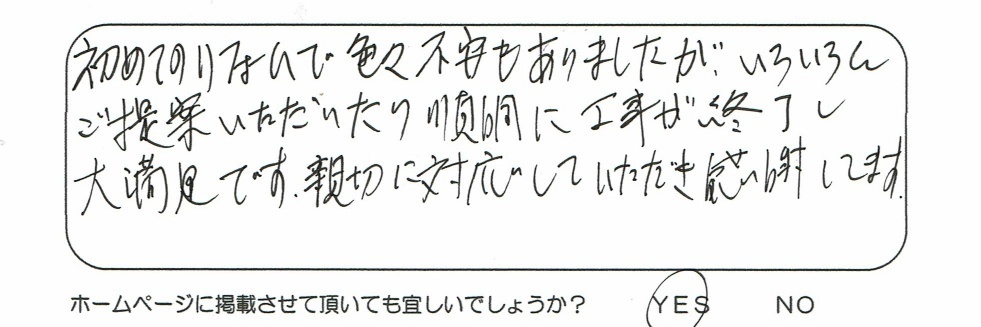 初めてのリフォームで色々不安もありましたが、いろいろ
ご提案いただいたり順調に工事が終了し
大満足です。親切に対応していただき感謝してます。
ホームページに掲載させて頂いても宜しいでしょうか？ YES NO